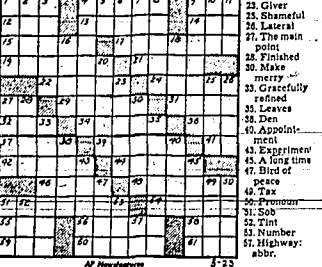 1 2 3 4 5 6 7 8 9 10 11
12 13 14
15 16 17 18
19 20 21
22 23 24 25 26
27 28 29 30 31
32 33 34 35 36
37 38 39 40 41
42 43 44 45
46 47 48 49 50
51 52 53 54
55 56 57 58
59 60 61
AP Newsfeatures 5-23
23. Giver
25. Shameful
26. Lateral
27. The main
point
28. Finished
30. Make
merry
33. Gracefully
refined
35. Leaves
38. Den
40. Appoint-
ment
43. Expriment
45. A long time
47. Bird of
peace
49. Tax
50. Pronoun
51. Sob
52. Tint
53. Number
57. Highway:
abbr.